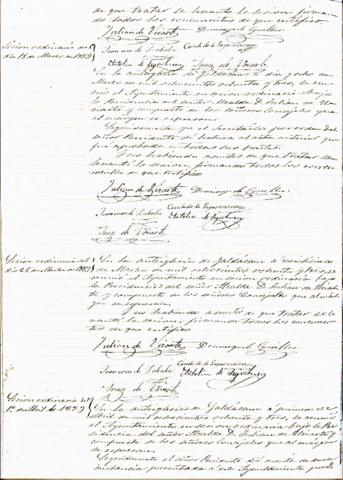 de que tratar se levantó la sesion firman-
do todos los concurrentes de que certifico
Julian de Uriarte Domingo de
Juan de Uriarte
Sesion ordinaria del
dia 18 de Marzo de 1883
En la anteiglesia de Galdácano a diez y ocho de
Marzo de mil ochocientos ochenta y tres, se reu-
nió el Ayuntamiento en sesion ordinaria bajo
la Presidencia del señor Alcalde D. Julian de Uri-
arte y compuesto de los señores Concejales que
al margen se expresan.
Seguidamente yo el Secretario por orden del
señor Presidente di lectura del acta anterior que
fue aprobada en todas sus partes.
Y no habiendo asunto de que tratar se
levantó la sesion, firmando todos los concu-
rrentes de que certifico
Julian de Uriarte Domingo de
Juan de Uriarte
Sesion ordinaria del
dia 25 de Marzo de 1883
En la anteiglesia de Galdácano a veinticinco
de Marzo de mil ochocientos ochenta y tres, se
reunió el Ayuntamiento en sesion ordinaria bajo
la Presidencia del señor Alcalde D. Julian de Uriar-
te y compuesto de los señores Concejales que al mar-
gen se expresan.
Y no habiendo asunto de que tratar se le-
vantó la sesion, firmando todos los concurren-
tes de que certifico
Julian de Uriarte Domingo de
Juan de Uriarte
Sesion ordinaria del
1º de Abril de 1883
En la anteiglesia de Galdácano a primero de
Abril de mil ochocientos ochenta y tres, se reunió
el Ayuntamiento en sesion ordinaria bajo la Pre-
sidencia del señor Alcalde D. Julian de Uriarte y
compuesto de los señores Concejales que al margen
se expresan.
Seguidamente el señor Presidente dió cuenta de una
instancia presentada a este Ayuntamiento por